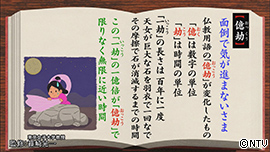 【億劫】
面倒で気が進まないさま
仏教用語の「億劫」が変化したもの
「億」は数字の単位
「劫」は時間の単位
「一劫」の長さは百年に一度
天女が巨大な石を羽衣で一回なで
その摩擦で石が消滅するまでの時間
この「一劫」の一億倍が「億劫」で
限りなく無限に近い時間
©NTV